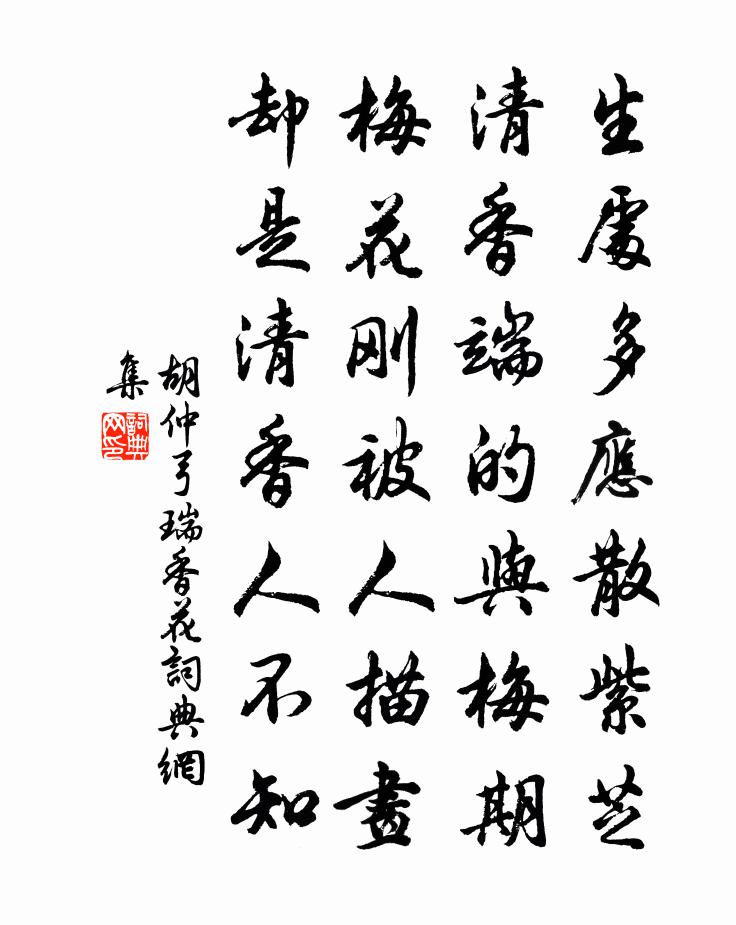 生處多應散紫芝
清香端的與梅期
梅花刚被人描畫
却是清香人不知
胡仲弓瑞香花詞典網
集
詞典
网印